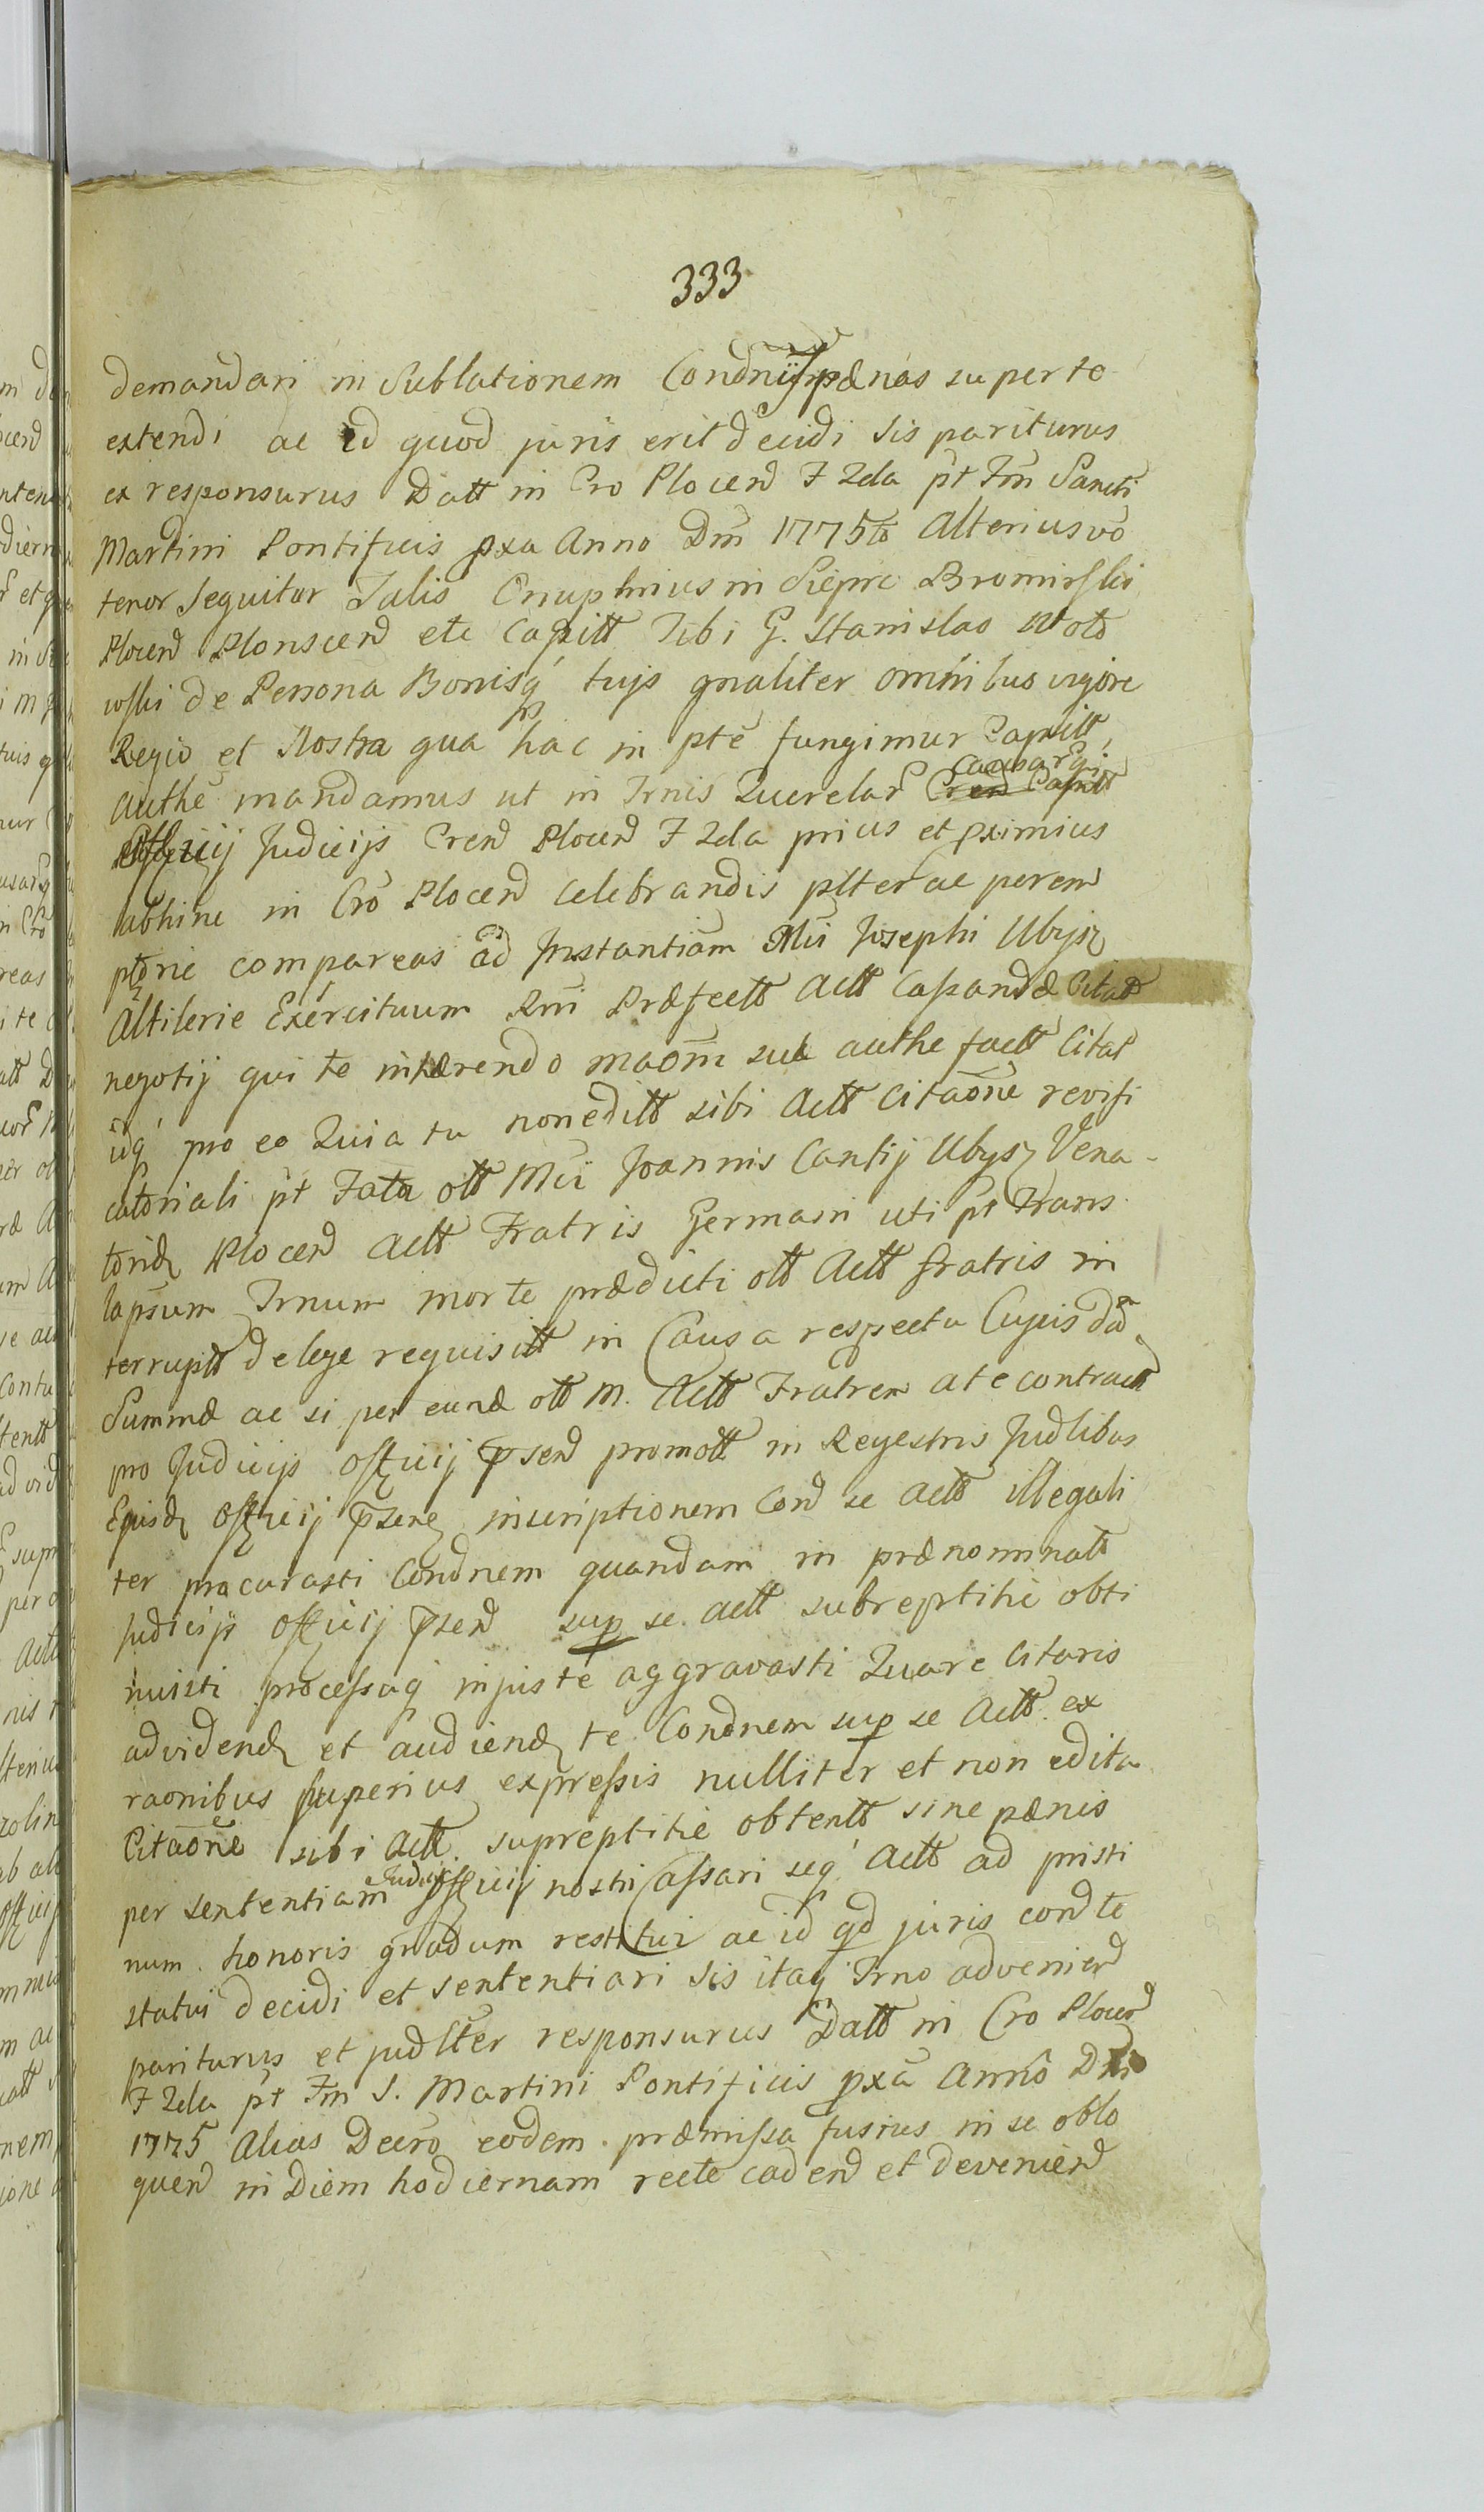 333
demandari in Sublationem Condnijs pænas super te
extendi ac id quod juris erit decidi sis pariturus
ex responsurus Datt in Cro Plocen F 2da pt Fm Sancti
Martini Pontificis pxa Anno Dni 1775to Alterius vo
tenor Sequitur Talis Onuphrius in Siepre Bromirski
Plocen Plonscen etc Capitt Tibi G. Stanislao
de Persona Bonisq tujs gnaliter omnibus vigore
Regio et Nostra qua hac in pte fungimur Capitt
authe mandamus ut in Trnis Querelar Causarq
Capitt
Officij Judicijs Cren Plocen F 2da prius et pximius
abhinc in Cro Plocen Celebrandis plter ac perem
ptorie compareas ad Instantiam Mci Josephi Ubysz
Altilerie Exercituum Rni Præfecti Actt Cassandæ Citat
negotij qui te inhærendo maom sue authe factt Citat
iq pro eo Quia tu non editt sibi Actt Citaone revifi
catoriali pt Fata ott Mci Joannis Cantij Ubysz Vena-
toridz Plocen Actt Fratris Germani uti pt Trans
lapsum Trnum morte prædicti ott Actt fratris in
terruptt de lege requisitt in Causa respectu Cujusda
Summæ ac si per eund ott M. Actt Fratrem a te contractt
pro Judicijs officij psen promott in Regestris Judlibus
Ejusd officij psen inscriptionem Con se Actt illegali
ter procurasti Condnem quandam in prænominatt
Judicijs officij psen sup se Actt subreptitie obti
nuisti processuq injuste aggravasti Quare Citaris
ad videnz et audienz te Condnem sup se Actt ex
raonibus superius expressis nulliter et non edita
Citaone sibi Actt supreptitie obtentt sine pænis
per sententiam Judicij officij nostri Cassari seq Actt ad pristi
num honoris gradum restitui ac id qd juris con te
statui decidi et sententiari sis itaq Trno advenien
pariturus et judlter responsurus Datt in Cro Plocen
F 2da pt Fm S. Martini Pontificis pxa Anno Dni
1775 Alias Decro eodem præmissa fusius in se oblo
quen in Diem hodiernam recte caden et devenien